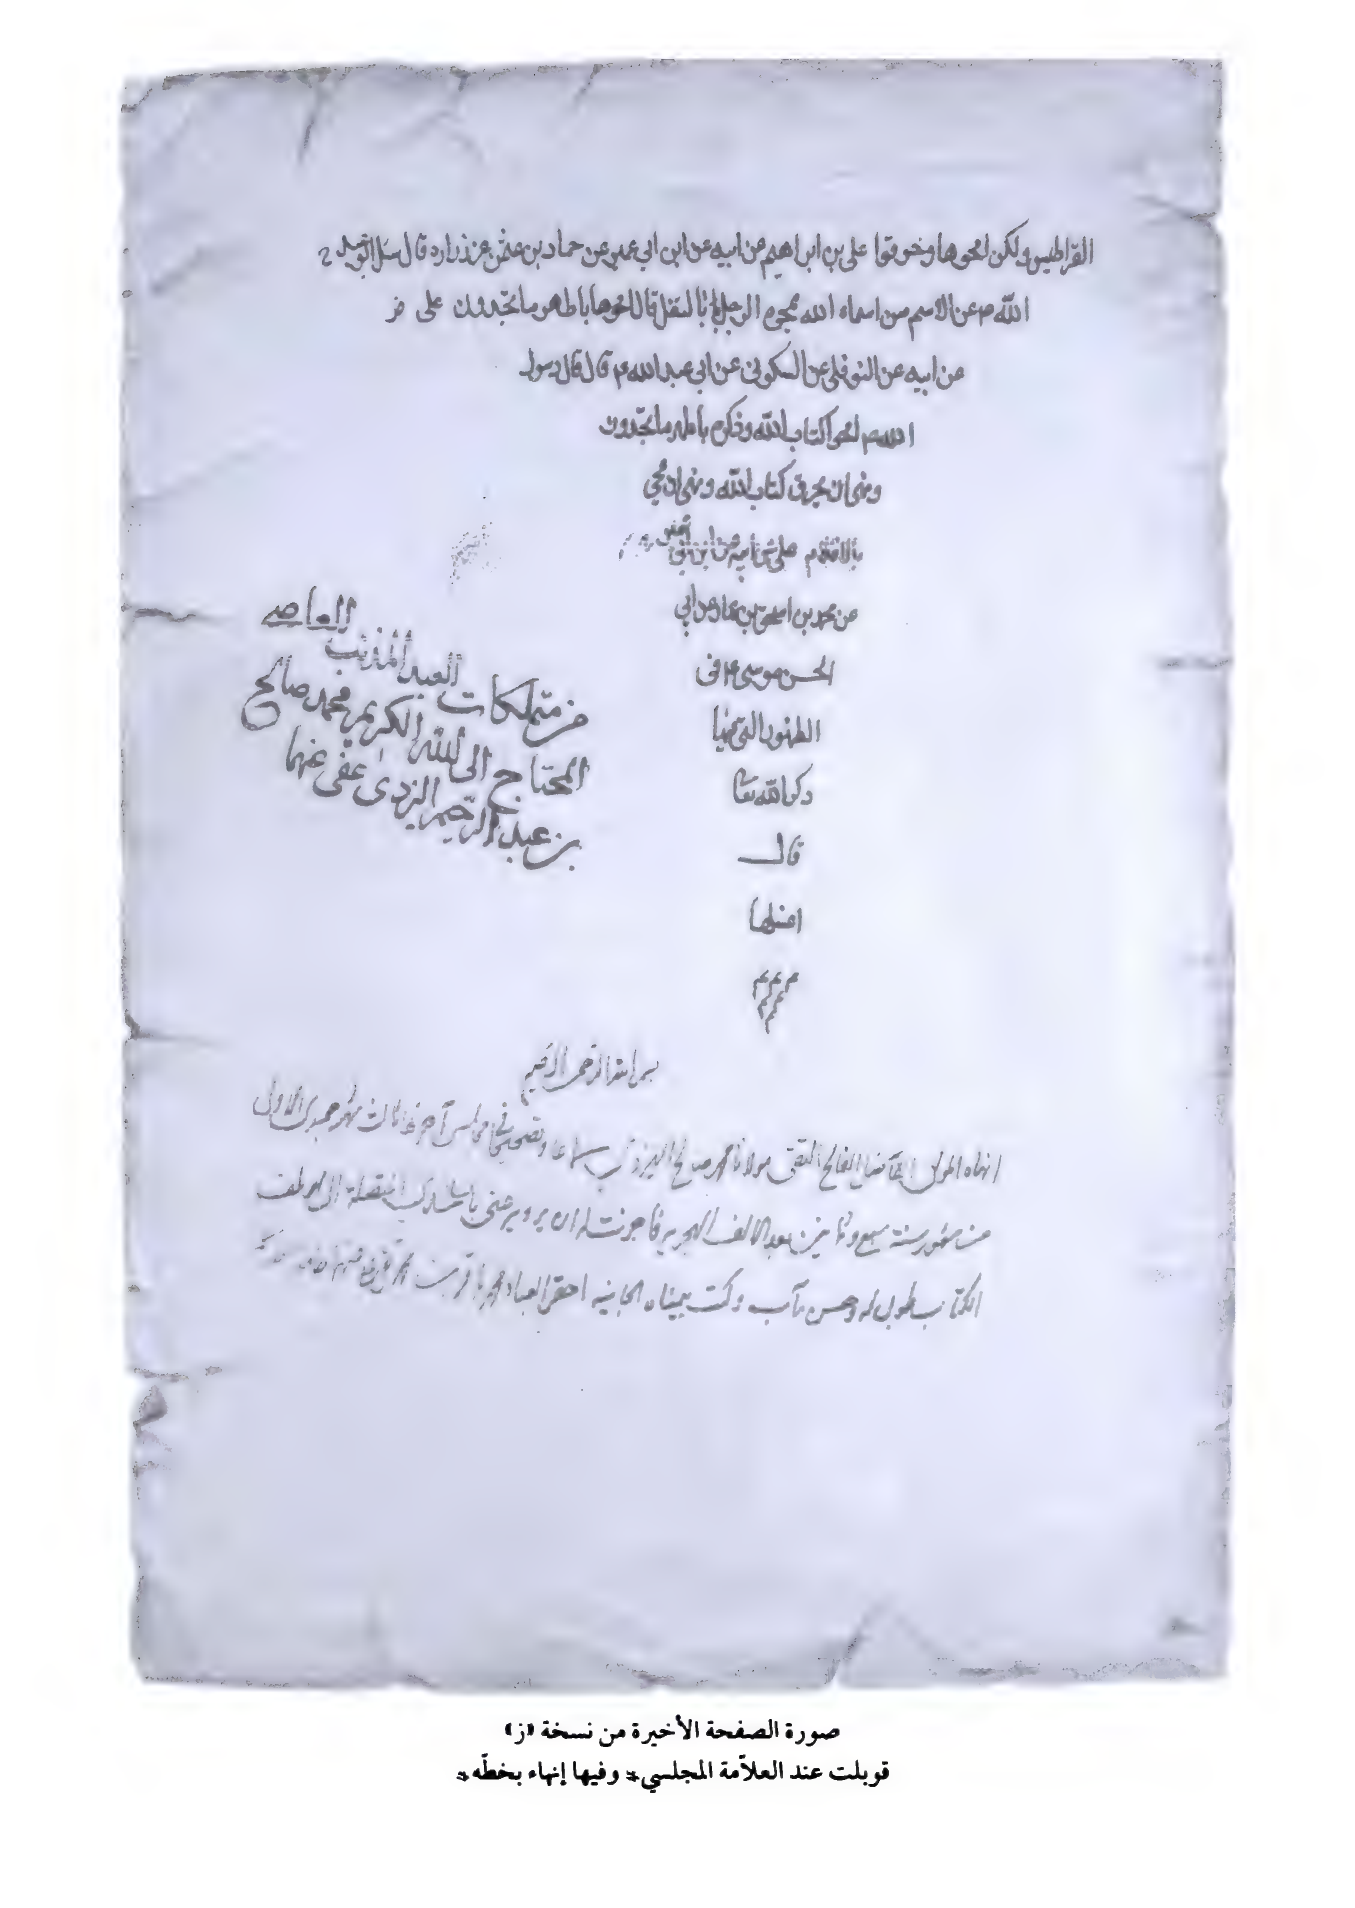 القراطيس ولكن امحوها وخرقوا علي بن ابراهيم عن ابيه عن ابن ابي عمير عن حماد بن عثمن عن زراره قال سئل
الله م عن الاسم من اسماء الله يمحوه الرجل بالتفل قال امحوها باطهر ما تجدون علي
عن ابيه عن النوفلي عن السكوني عن ابي عبد الله م قال قال رسول
الله م امحوا كتاب الله وذكره باطهر ما تجدون
ونهى ان يحرق كتاب الله ونهى ان يمحى
بالاقلام علي عن ابيه عن
عن محمد بن اسحق بن عمار عن ابي
الحسن موسى م في
الظهور التي فيها
ذكر الله تعا
قال
اغسلها
العاصي
العبد المذنب
من متملكات
المحتاج الى الله الكريم محمد صالح
بن عبد الرحيم اليزدي عفى عنهما
بسم الله الرحمن الرحيم
انهاه المولى الفاضل الصالح التقي مولانا محمد صالح اليزدي سماعا وتصحيحا في مجالس آخرها ثالث شهر جميدى الاولى
من شهور سنة سبع وثمانين بعد الالف الهجرية فاجزت له ان يروي عني باسانيدي المتصلة الى مؤلف
الكتاب طوبى له وحسن مآب وكتب بيمناه الجانية احقر العباد محمد باقر بن محمد تقي
صورة الصفحة الأخيرة من نسخة «ز»
قوبلت عند العلاّمة المجلسي* وفيها إنهاء بخطّه*